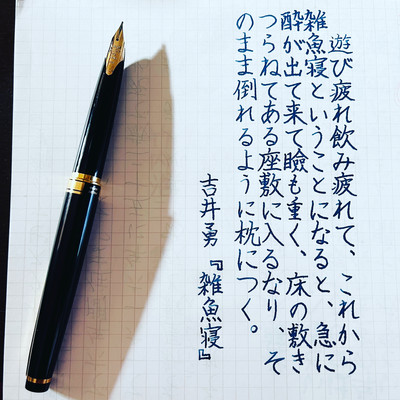 遊び疲れ飲み疲れて、これから
雑魚寝ということになると、急に
酔が出て来て瞼も重く、床の敷き
つらねてある座敷に入るなり、そ
のまま倒れるように枕につく。
吉井勇『雑魚寝』